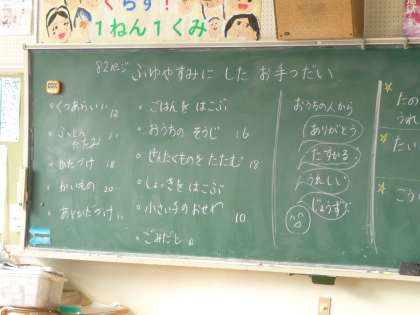 くらす!
1ねん1くみ
82ページ ふゆやすみに した お手つだい
くつあらい 12
ふとん
たたみ
かたづけ 18
かいもの 20
あとかたづけ
ごはんを はこぶ
おうちの そうじ 16
せんたくものを たたむ 18
しょっきを はこぶ
小さい子の おせわ 10
ごみだし
おうちの人から
ありがとう
たすかる
うれしい
じょうず
たの
うれ
たい